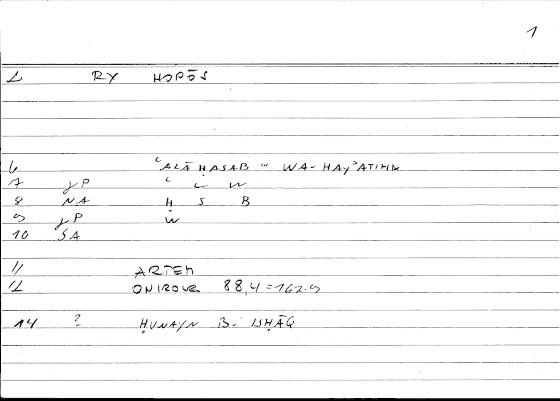 1
1 RY HOPŌS
6 ʿALĀ ḤASAB ... WA-HAYʾATIHIM
7 γP ʿ L W
8 NA Ḥ S B
9 γP W
10 SA
11 ARTEM
12 ONIROCR 88,4=162.9
14 ? ḤUNAYN B. ISḤĀQ